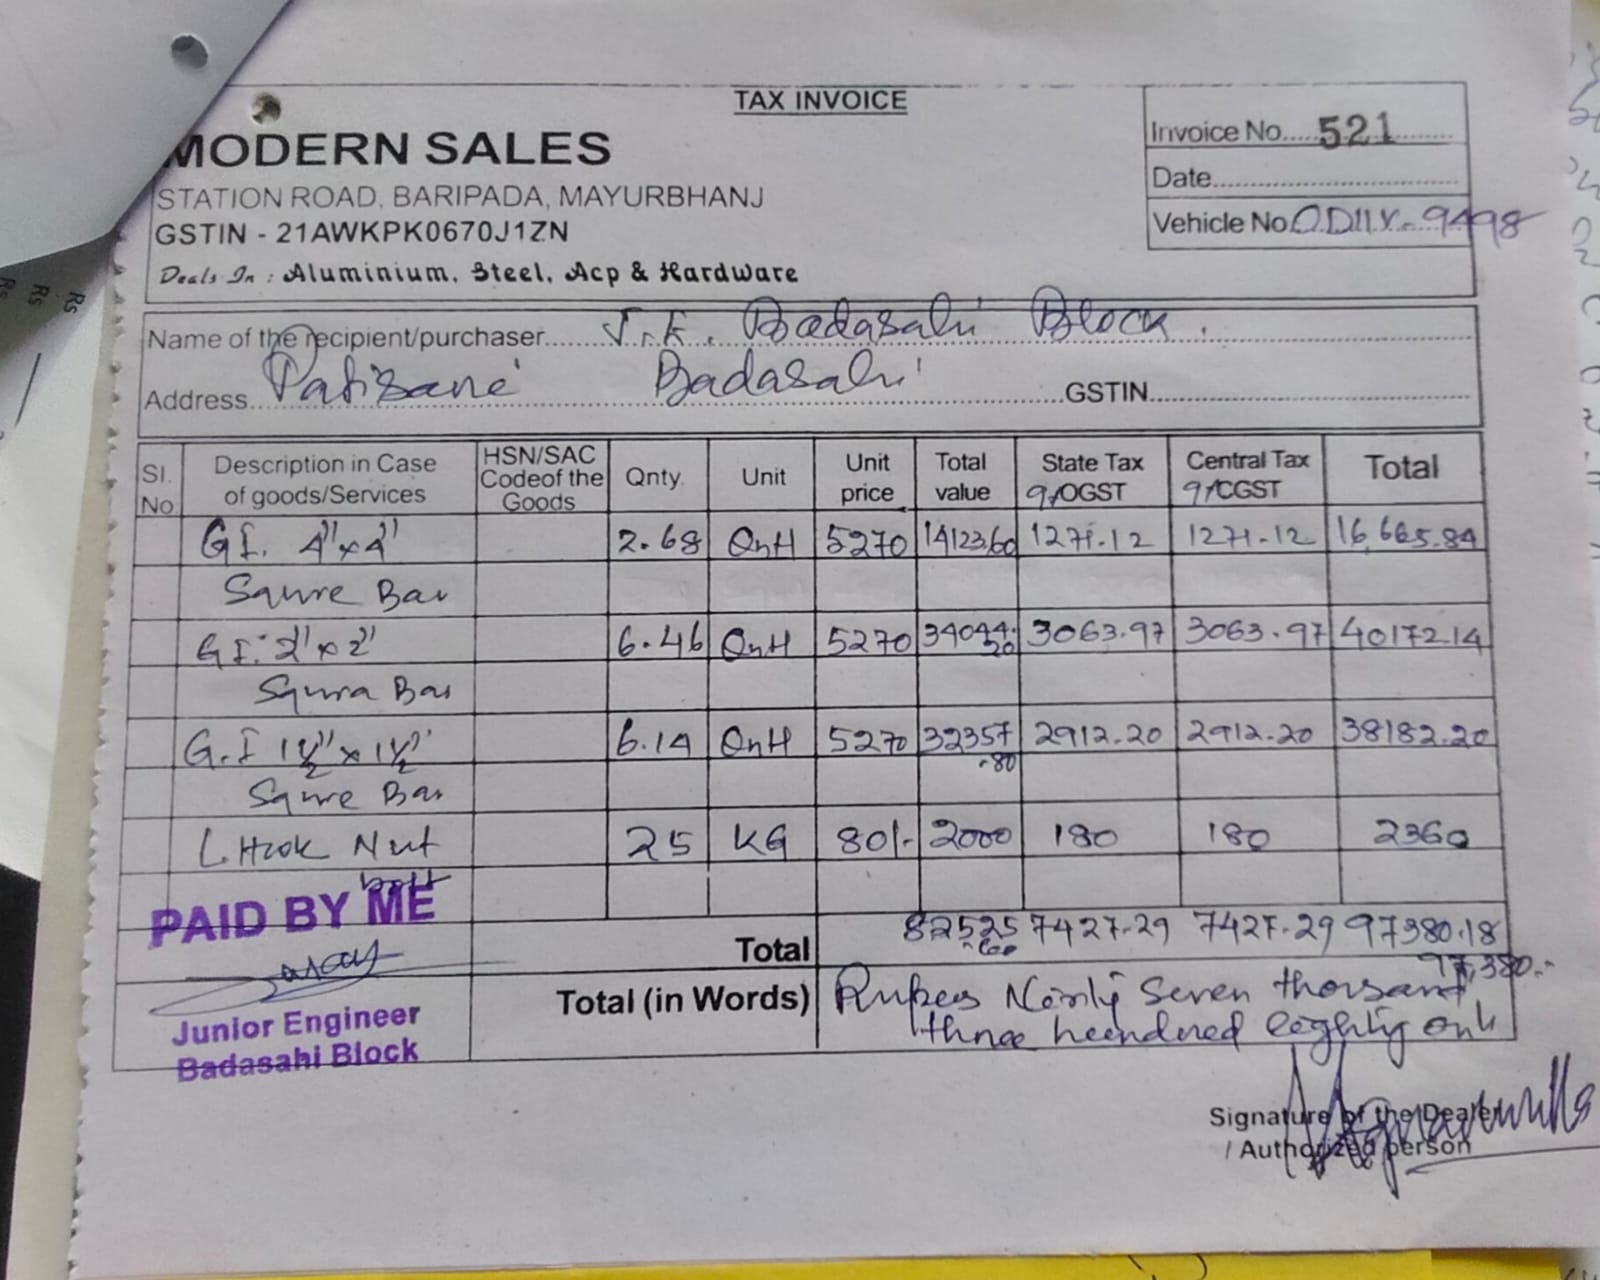 TAX INVOICE
MODERN SALES
STATION ROAD, BARIPADA, MAYURBHANJ
GSTIN - 21AWKPK0670J1ZN
Deals In : Aluminium, Steel, Acp & Hardware
Invoice No..... 521
Date
Vehicle No. 9498
Name of the recipient/purchaser Badasahi Block.
Address Badasahi GSTIN
Sl. No Description in Case of goods/Services HSN/SAC Codeof the Goods Qnty. Unit Unit price Total value State Tax 9/OGST Central Tax 9/CGST Total
GI. 4"x4" 2.68 QntI 5270 14123.60 1271.12 1271.12 16,665.84
Sqwre Bar
GI. 2"x2" 6.46 QntI 5270 34044.20 3063.97 3063.97 40172.14
Sqwra Bar
G.I 1½"x1½" 6.14 QntI 5270 32357.80 2912.20 2912.20 38182.20
Sqwre Bar
L Hook Nut bolt 25 KG 80/- 2000 180 180 2360
PAID BY ME
Total 82525.60 7427.29 7427.29 97380.18
97,380.-
Total (in Words) Rupees Ninty Seven thousand
three hundred eighty only
Junior Engineer
Badasahi Block
Signature of the Dealer
/ Authorized person
Rs
Rs
Rs